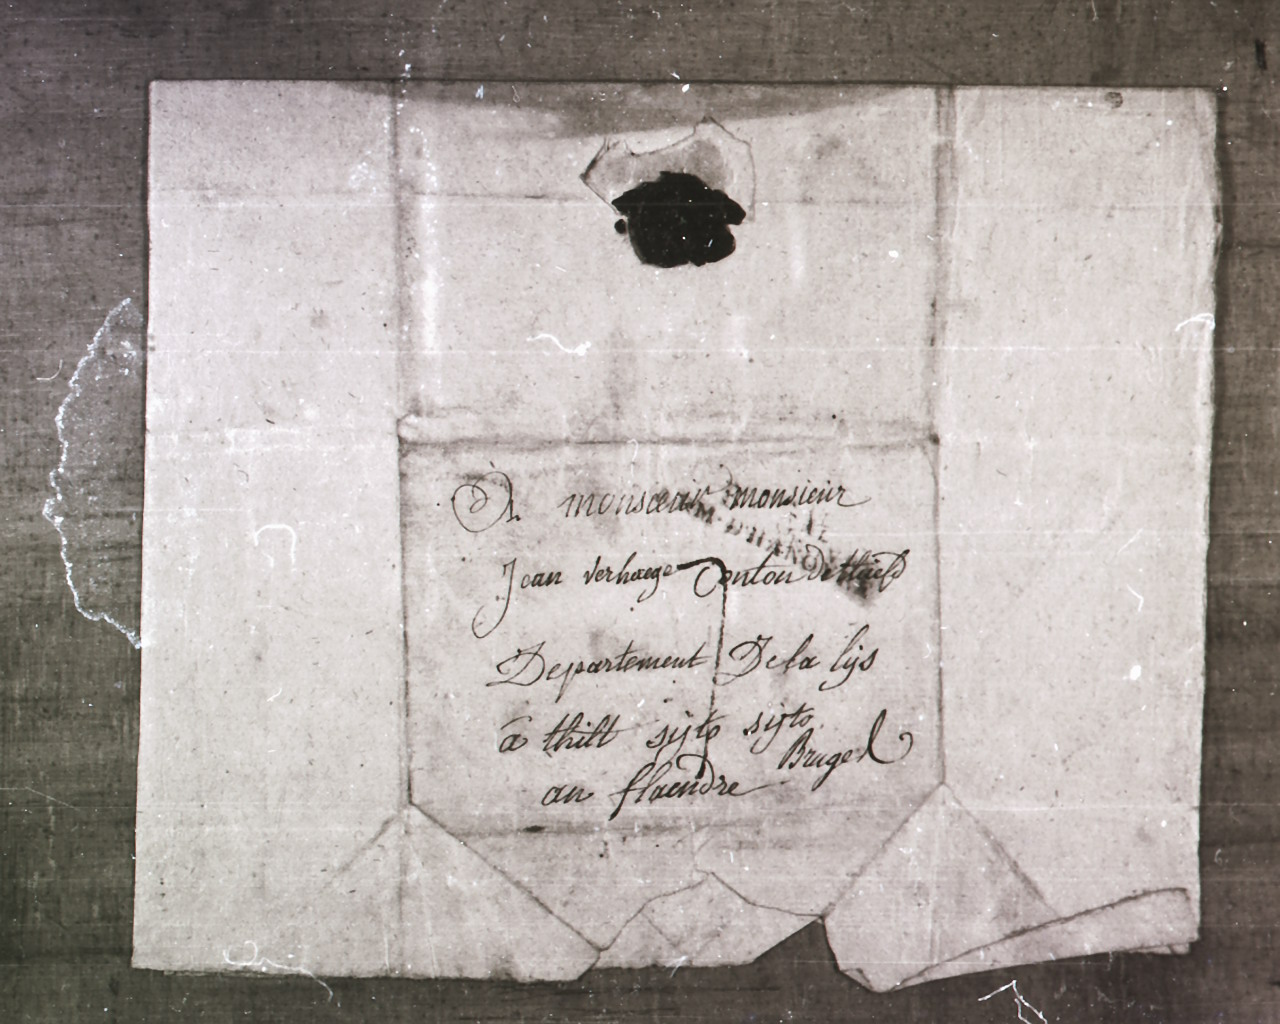 A monsoeur monsieur
Jean verhaege Conton De thielt
Departement De la lijs
a thilt sijto sijto
Bruge
an flaendre